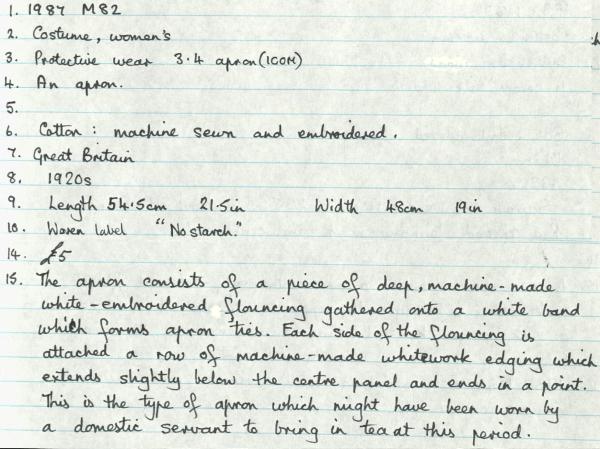 1. 1987 M82
2. Costume, women's
3. Protective wear 3.4 apron (ICOM)
4. An apron.
5.
6. Cotton: machine sewn and embroidered.
7. Great Britain
8. 1920s
9. Length 54.5cm 21.5in Width 48cm 19in
10. Woven label "No starch."
14. £5
15. The apron consists of a piece of deep, machine-made
white-embroidered flouncing gathered onto a white band
which forms apron ties. Each side of the flouncing is
attached a row of machine-made whitework edging which
extends slightly below the centre panel and ends in a point.
This is the type of apron which might have been worn by
a domestic servant to bring in tea at this period.